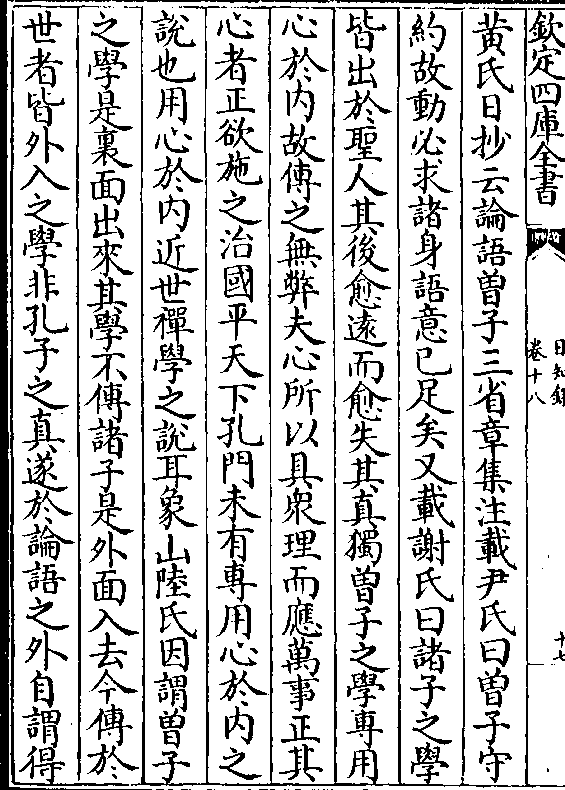 欽定四庫全書
日知錄
卷十八
十七
黃氏日抄云論語曽子三省章集注載尹氏曰曽子守
約故動必求諸身語意已足矣又載謝氏曰諸子之學
皆出於聖人其後愈遠而愈失其真獨曽子之學專用
心於内故傳之無弊夫心所以具衆理而應萬事正其
心者正欲施之治國平天下孔門未有專用心於内之
說也用心於内近世禪學之說耳象山陸氏因謂曽子
之學是裏面出來其學不傳諸子是外面入去今傳於
世者皆外入之學非孔子之真遂於論語之外自謂得